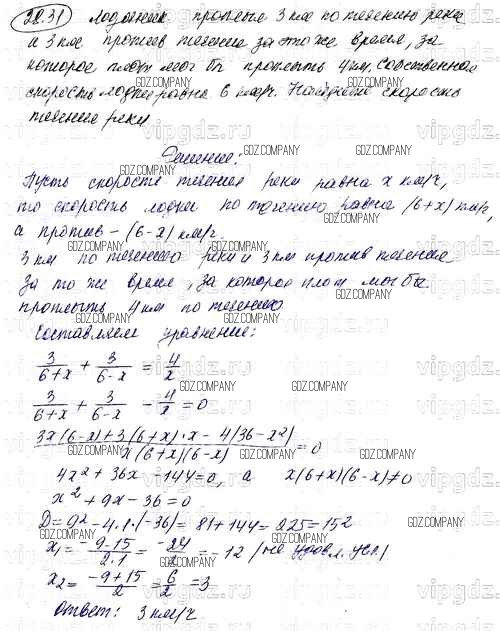 20.31 Лодочник проплыл 3 км по течению реки
и 3 км против течения за то же время, за
которое плот мог бы проплыть 4 км. Собственная
скорость лодки равна 6 км/ч. Найдите скорость
течения реки.
Решение:
Пусть скорость течения реки равна x км/ч,
то скорость лодки по течению равна (6+x) км/ч,
а против – (6-x) км/ч.
3 км по течению реки и 3 км против течения
за то же время, за которое плот мог бы
проплыть 4 км по течению.
Составляем уравнение:
3/(6+x) + 3/(6-x) = 4/x
3/(6+x) + 3/(6-x) - 4/x = 0
(3x(6-x)+3(6+x)·x - 4(36-x²))/(x(6+x)(6-x)) = 0
4x² + 36x - 144 = 0, а x(6+x)(6-x)≠0
x² + 9x - 36 = 0
D = 9² - 4·1·(-36) = 81 + 144 = 225 = 15²
x₁ = (-9-15)/(2·1) = -24/2 = -12 (не удовл. усл.)
x₂ = (-9+15)/2 = 6/2 = 3
Ответ: 3 км/ч
GDZ.COMPANY
vipgdz.ru